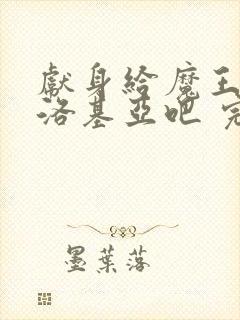 獻身給魔王
洛基亞吧 完
墨葉落